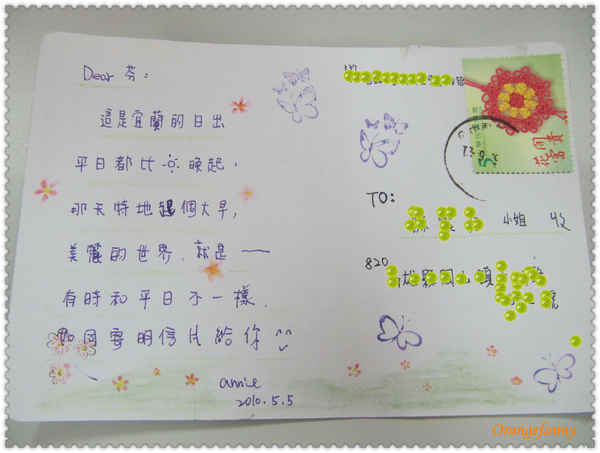 Dear 芬:
這是宜蘭的日出
平日都比晚起,
那天特地起個大早,
美麗的世界,就是——
有時和平日不一樣.
如同明信片給你 ^^
annie
2010.5.5
337
花開富貴
5
TO:
小姐 收
820
縣
Orangefanny